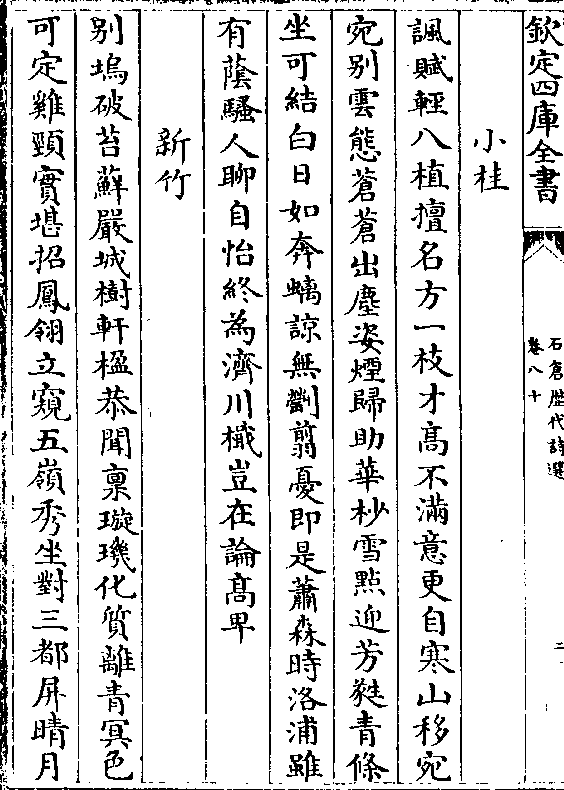 欽定四庫全書
石倉歷代詩選
卷八十
二
小桂
諷賦輕八植擅名方一枝才髙不滿意更自寒山移宛
宛别雲態蒼蒼出塵姿煙歸助華杪雪點迎芳蕤青條
坐可結白日如奔螭諒無劚翦憂即是蕭森時洛浦雖
有蔭騷人聊自怡終為濟川檝豈在論髙卑
新竹
别塢破苔蘚嚴城樹軒楹恭聞禀璇璣化質離青冥色
可定雞頸實堪招鳳翎立窺五嶺秀坐對三都屏晴月